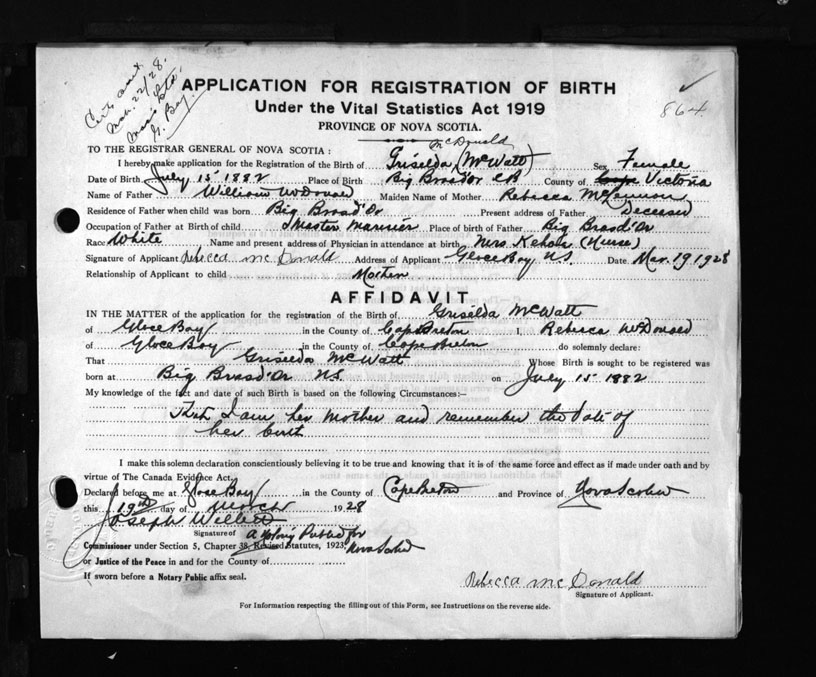 864
APPLICATION FOR REGISTRATION OF BIRTH
Under the Vital Statistics Act 1919
PROVINCE OF NOVA SCOTIA.
McDonald
TO THE REGISTRAR GENERAL OF NOVA SCOTIA :
I hereby make application for the Registration of the Birth of Griselda (McWatt) Sex Female
Date of Birth July 15 1882 Place of Birth Big Brasd'Or CB County of Victoria
Name of Father William McDonald Maiden Name of Mother Rebecca
Residence of Father when child was born Big Brasd'Or Present address of Father Deceased
Occupation of Father at Birth of child Master Mariner Place of birth of Father Big Brasd'Or
Race White Name and present address of Physician in attendance at birth Mrs (Nurse)
Signature of Applicant Rebecca McDonald Address of Applicant Glace Bay N.S. Date Mar. 19 1928
Relationship of Applicant to child Mother
AFFIDAVIT
IN THE MATTER of the application for the registration of the Birth of Griselda McWatt
of Glace Bay in the County of Cape Breton I, Rebecca McDonald
of Glace Bay in the County of Cape Breton do solemnly declare:
That Griselda McWatt Whose Birth is sought to be registered was
born at Big Brasd'Or N.S. on July 15 1882
My knowledge of the fact and date of such Birth is based on the following Circumstances:-
That I am her Mother and remember the date of
her birth
I make this solemn declaration conscientiously believing it to be true and knowing that it is of the same force and effect as if made under oath and by
virtue of The Canada Evidence Act.
Declared before me at Glace Bay in the County of Cape Breton and Province of Nova Scotia
this 19th day of March 1928
Joseph Willett
Signature of A Notary Public for
Commissioner under Section 5, Chapter 38, Revised Statutes, 1923. Nova Scotia
or Justice of the Peace in and for the County of
If sworn before a Notary Public affix seal.
Rebecca McDonald
Signature of Applicant.
For Information respecting the filling out of this Form, see Instructions on the reverse side.